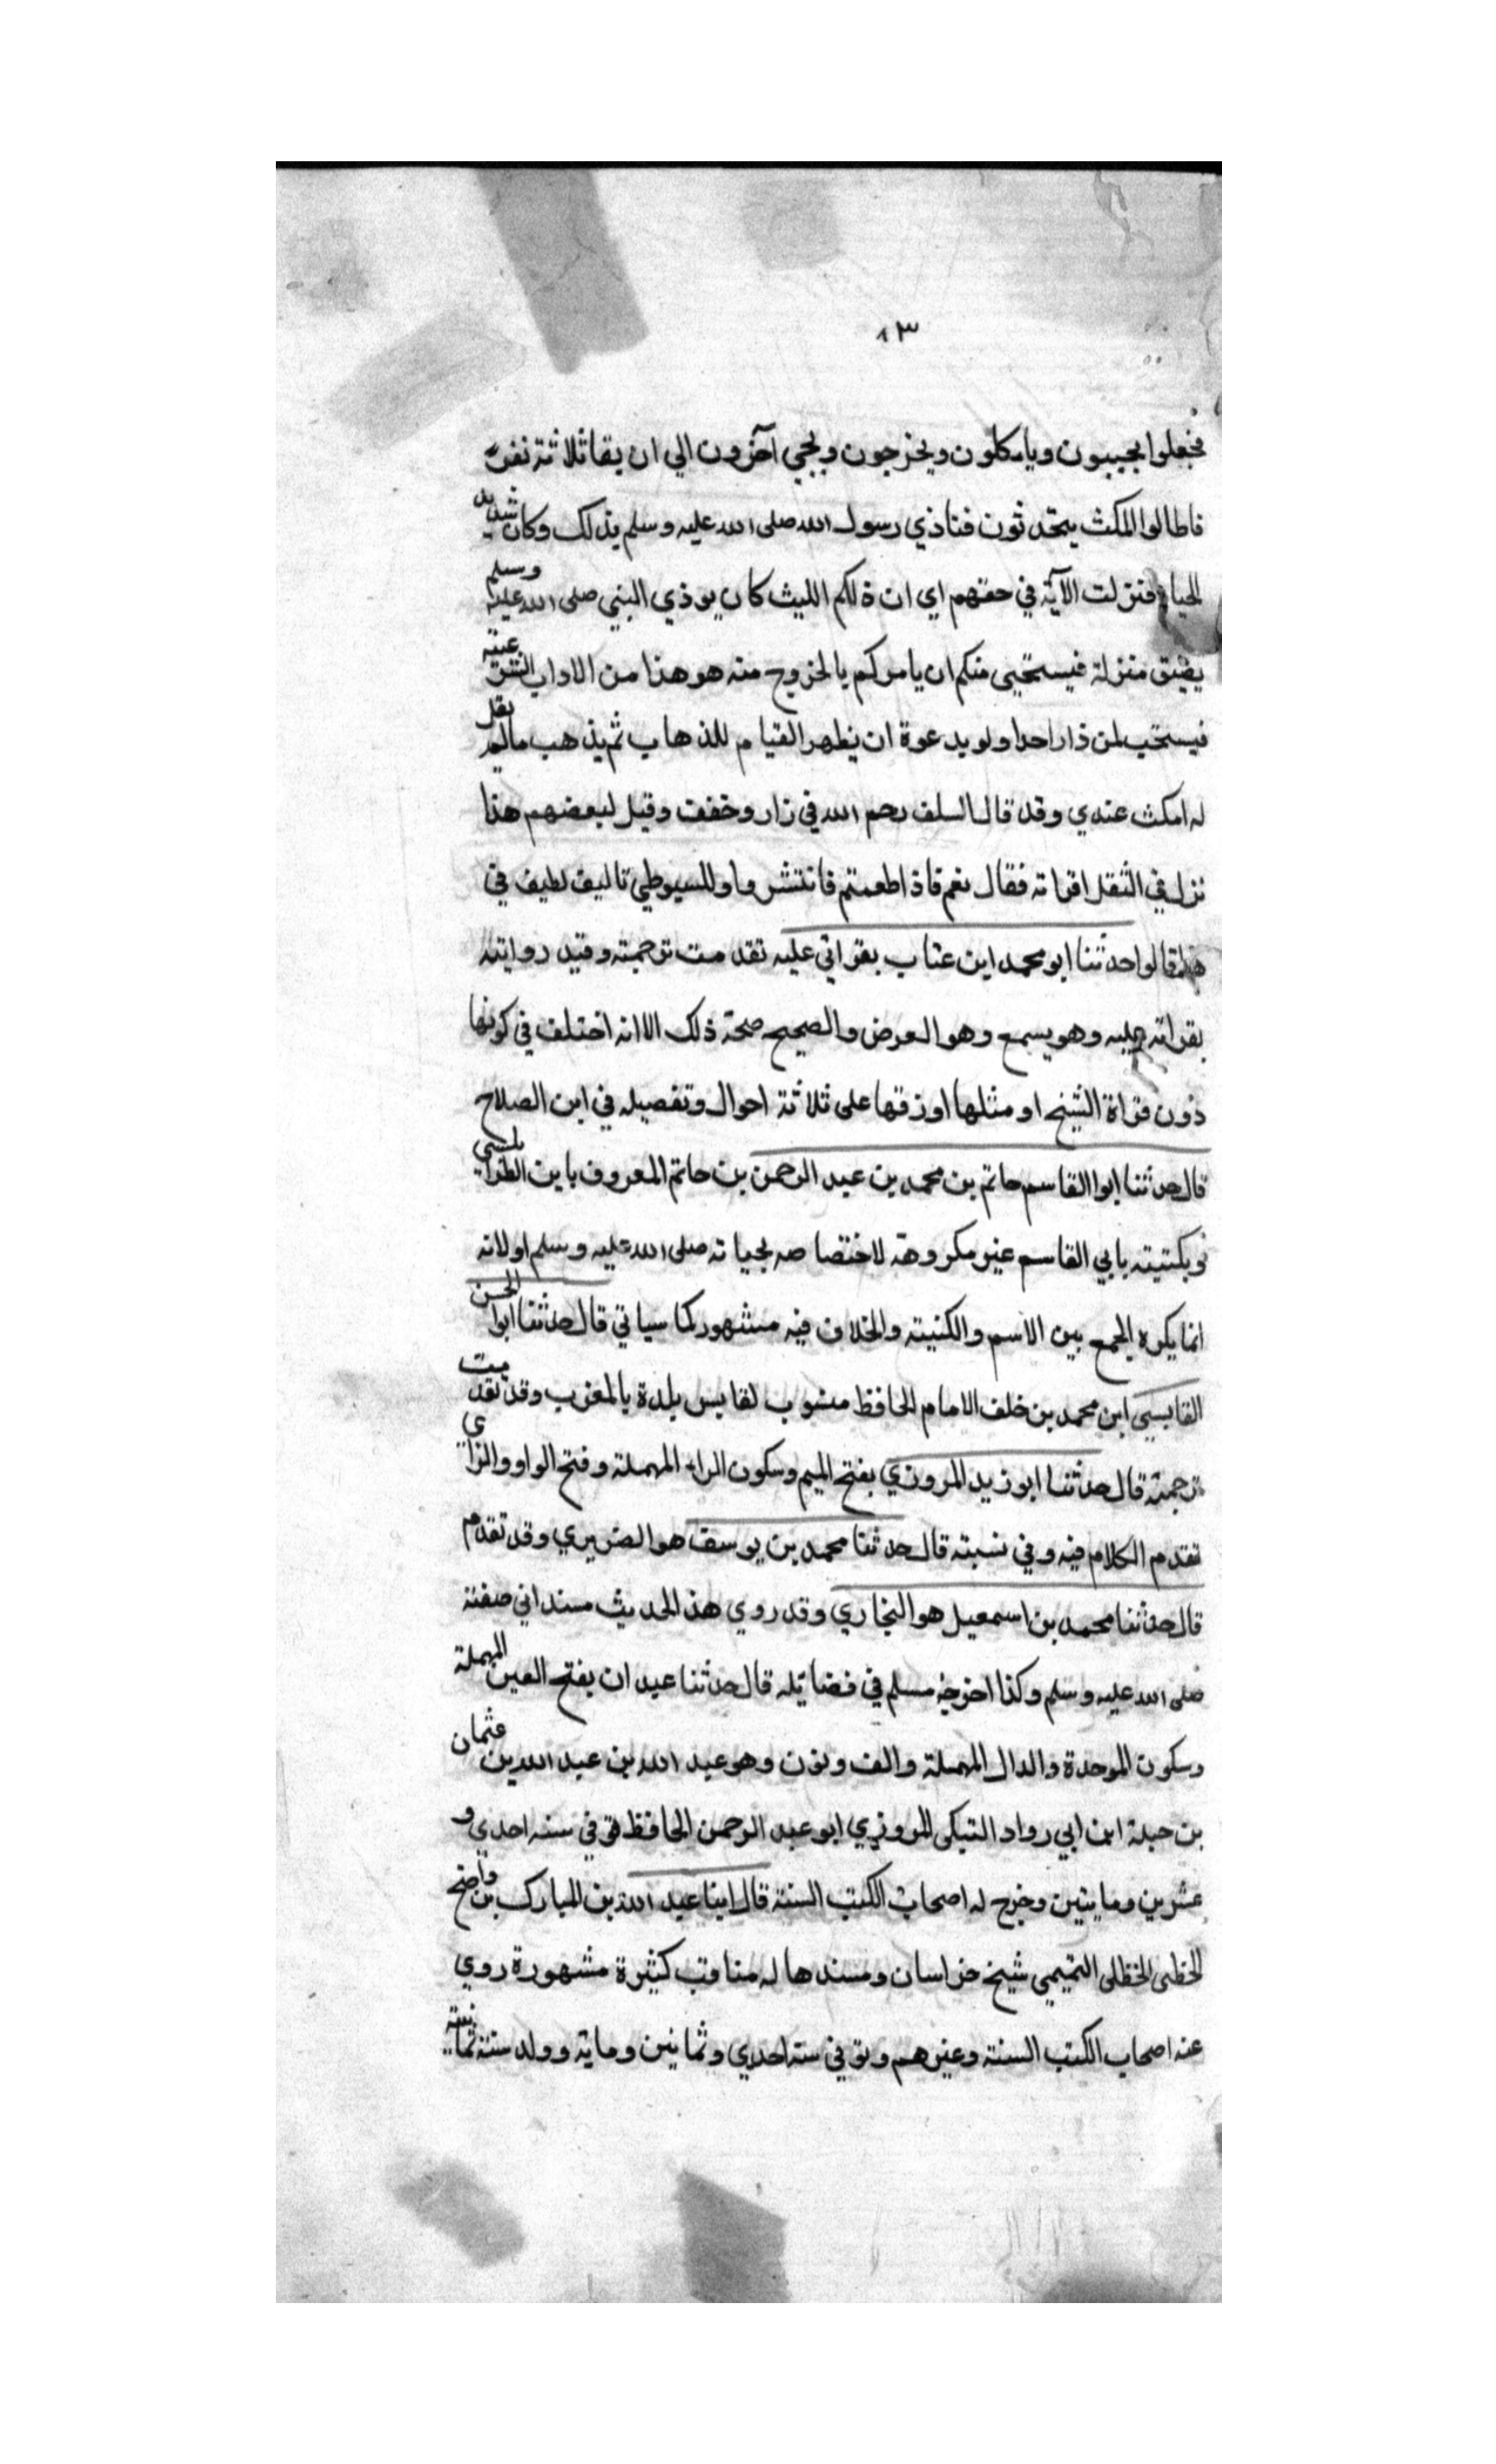 ١٣
فجعلوا يجيبون وياكلون ويخرجون ويجي آخرون الي ان بقا ثلاثة نفر
فاطالوا المكث يتحدثون فتاذي رسول الله صلى الله عليه وسلم بذلك وكان شديد
الحيا فنزلت الآية في حقهم اي ان ذلكم اللبث كان يوذي النبي صلى الله عليه وسلم
يضيق منزلة فيستحيى منكم ان يامركم بالخروج منه هو هذا من الاداب الشرعية
فيستحب لمن زار احدا ولو بدعوة ان يظهر القيام للذهاب ثم يذهب مالم يقل
له امكث عندي وقد قال السلف رحم الله في زار وخفف وقيل لبعضهم هذا
نزل في الثقل اقراته فقال نعم فاذ اطعمتم فانتشروا وللسيوطي تاليف لطيف في
هذا قالوا حدثنا ابو محمد ابن عتاب بقراتي عليه تقدمت ترجمته وقيد روايته
بقراته عليه وهو يسمع وهو العرض والصحيح صحة ذلك الا انه اختلف في كونها
دون قراة الشيخ او مثلها او زقها على ثلاثة احوال وتفصيله في ابن الصلاح
قال حدثنا ابوا القاسم حاتم بن محمد بن عبد الرحمن بن حاتم المعروف بابن الطرابلسي
وبكتيته بابي القاسم غير مكروهة لاختصاصه بحياته صلى الله عليه وسلم او لانه
انما يكره الجمع بين الاسم والكنيته والخلاف فيه مشهور كما سياتي قال حدثنا ابوا الحسن
القابسي ابن محمد بن خلف الامام الحافظ منسوب لقابس بلدة بالمغرب وقد تقدمت
ترجمته قال حدثنا ابو زيد المروزي بفتح الميم وسكون الراء المهملة وفتح الواو والزاي
تقدم الكلام فيه وفي نسبته قال حدثنا محمد بن يوسف هو الضريري وقد تقدم
قال حدثنا محمد بن اسمعيل هو البخاري وقد روي هذ الحديث مسندا في صفته
صلى الله عليه وسلم وكذا اخرجه مسلم في فضائله قال حدثنا عبدان بفتح العين المهملة
وسكون الموحدة والدال المهملة والف ونون وهو عبد الله بن عبد الله بن عثمان
بن جبلة ابن ابي رواد التيكى المروزي ابو عبد الرحمن الحافظ توفي سنه احدي و
عشرين ومايتين وخرج له اصحاب الكتب الستة قال انبا عبد الله بن المبارك بن واضح
الحظلى التميمي شيخ خراسان ومسندها له مناقب كثيرة مشهورة روي
عنه اصحاب الكتب الستة وغيرهم وتوفي سنه احدي وثمانين وماية وولد سنة ثمانية